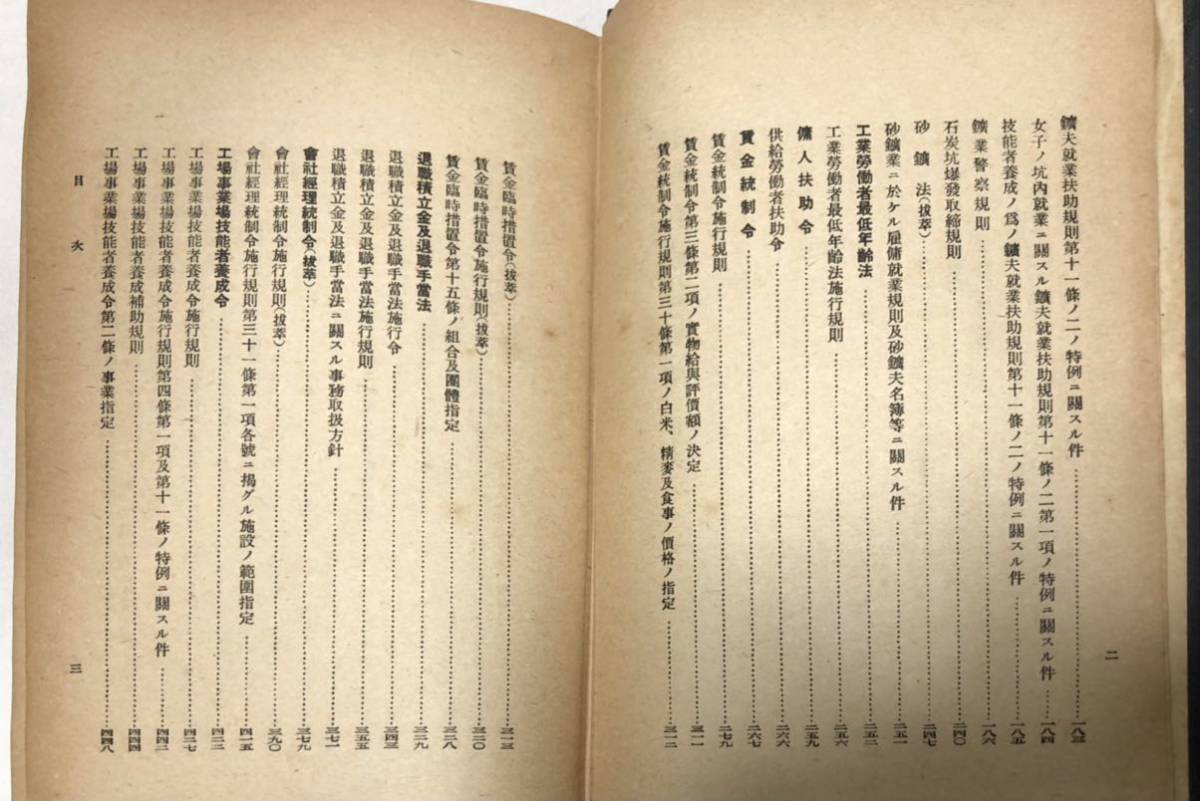 鑛夫就業扶助規則第十一條ノ二ノ特例ニ關スル件……一八三
女子ノ坑內就業ニ關スル鑛夫就業扶助規則第十一條ノ二第一項ノ特例ニ關スル件……一八四
技能者養成ノ爲ノ鑛夫就業扶助規則第十一條ノ二ノ特例ニ關スル件……一八五
鑛業警察規則……一八六
石炭坑爆發取締規則……二四〇
砂鑛法(拔萃)……二四七
砂鑛業ニ於ケル雇傭就業規則及砂鑛夫名簿等ニ關スル件……二五一
工業勞働者最低年齡法……二五二
工業勞働者最低年齡法施行規則……二五六
傭人扶助令……二五九
供給勞働者扶助令……二六六
賃金統制令……二六七
賃金統制令施行規則……二七九
賃金統制令第三條第二項ノ實物給與評價額ノ決定……三一一
賃金統制令施行規則第三十條第一項ノ白米、精麥及食事ノ價格ノ指定……三一二
二
賃金臨時措置令(拔萃)……三一三
賃金臨時措置令施行規則(拔萃)……三二〇
賃金臨時措置令第十五條ノ組合及團體指定……三二八
退職積立金及退職手當法……三二九
退職積立金及退職手當法施行令……三四三
退職積立金及退職手當法施行規則……三五五
退職積立金及退職手當法ニ關スル事務取扱方針……三七一
會社經理統制令(拔萃)……三七九
會社經理統制令施行規則(拔萃)……三九〇
會社經理統制令施行規則第三十一條第一項各號ニ揭グル施設ノ範圍指定……四一五
工場事業場技能者養成令……四二二
工場事業場技能者養成令施行規則……四二七
工場事業場技能者養成令施行規則第四條第一項及第十一條ノ特例ニ關スル件……四四二
工場事業場技能者養成補助規則……四四四
工場事業場技能者養成令第二條ノ事業指定……四四八
目次
三